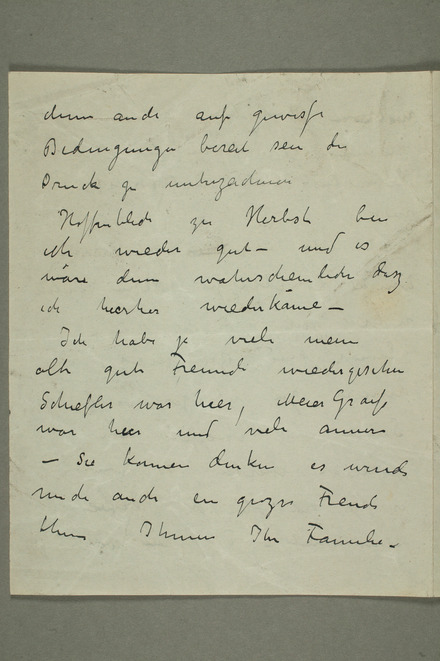 denn auch auf gewisse
Bedingungen bereit sein die
Drucke zu unterzeichnen
Hoffentlich zu Herbst bin
ich wieder gut – und es
wäre dann wahrscheinlich dasz
ich hierher wiederkäme –
Ich habe ja viele meine
alte gute Freunde wiedergesehen
Schiefler war hier, Meier Graefe
war hier und viele annere
– Sie können denken es würde
mich auch ein grosze Freude
Ihnen Ihr Familie –